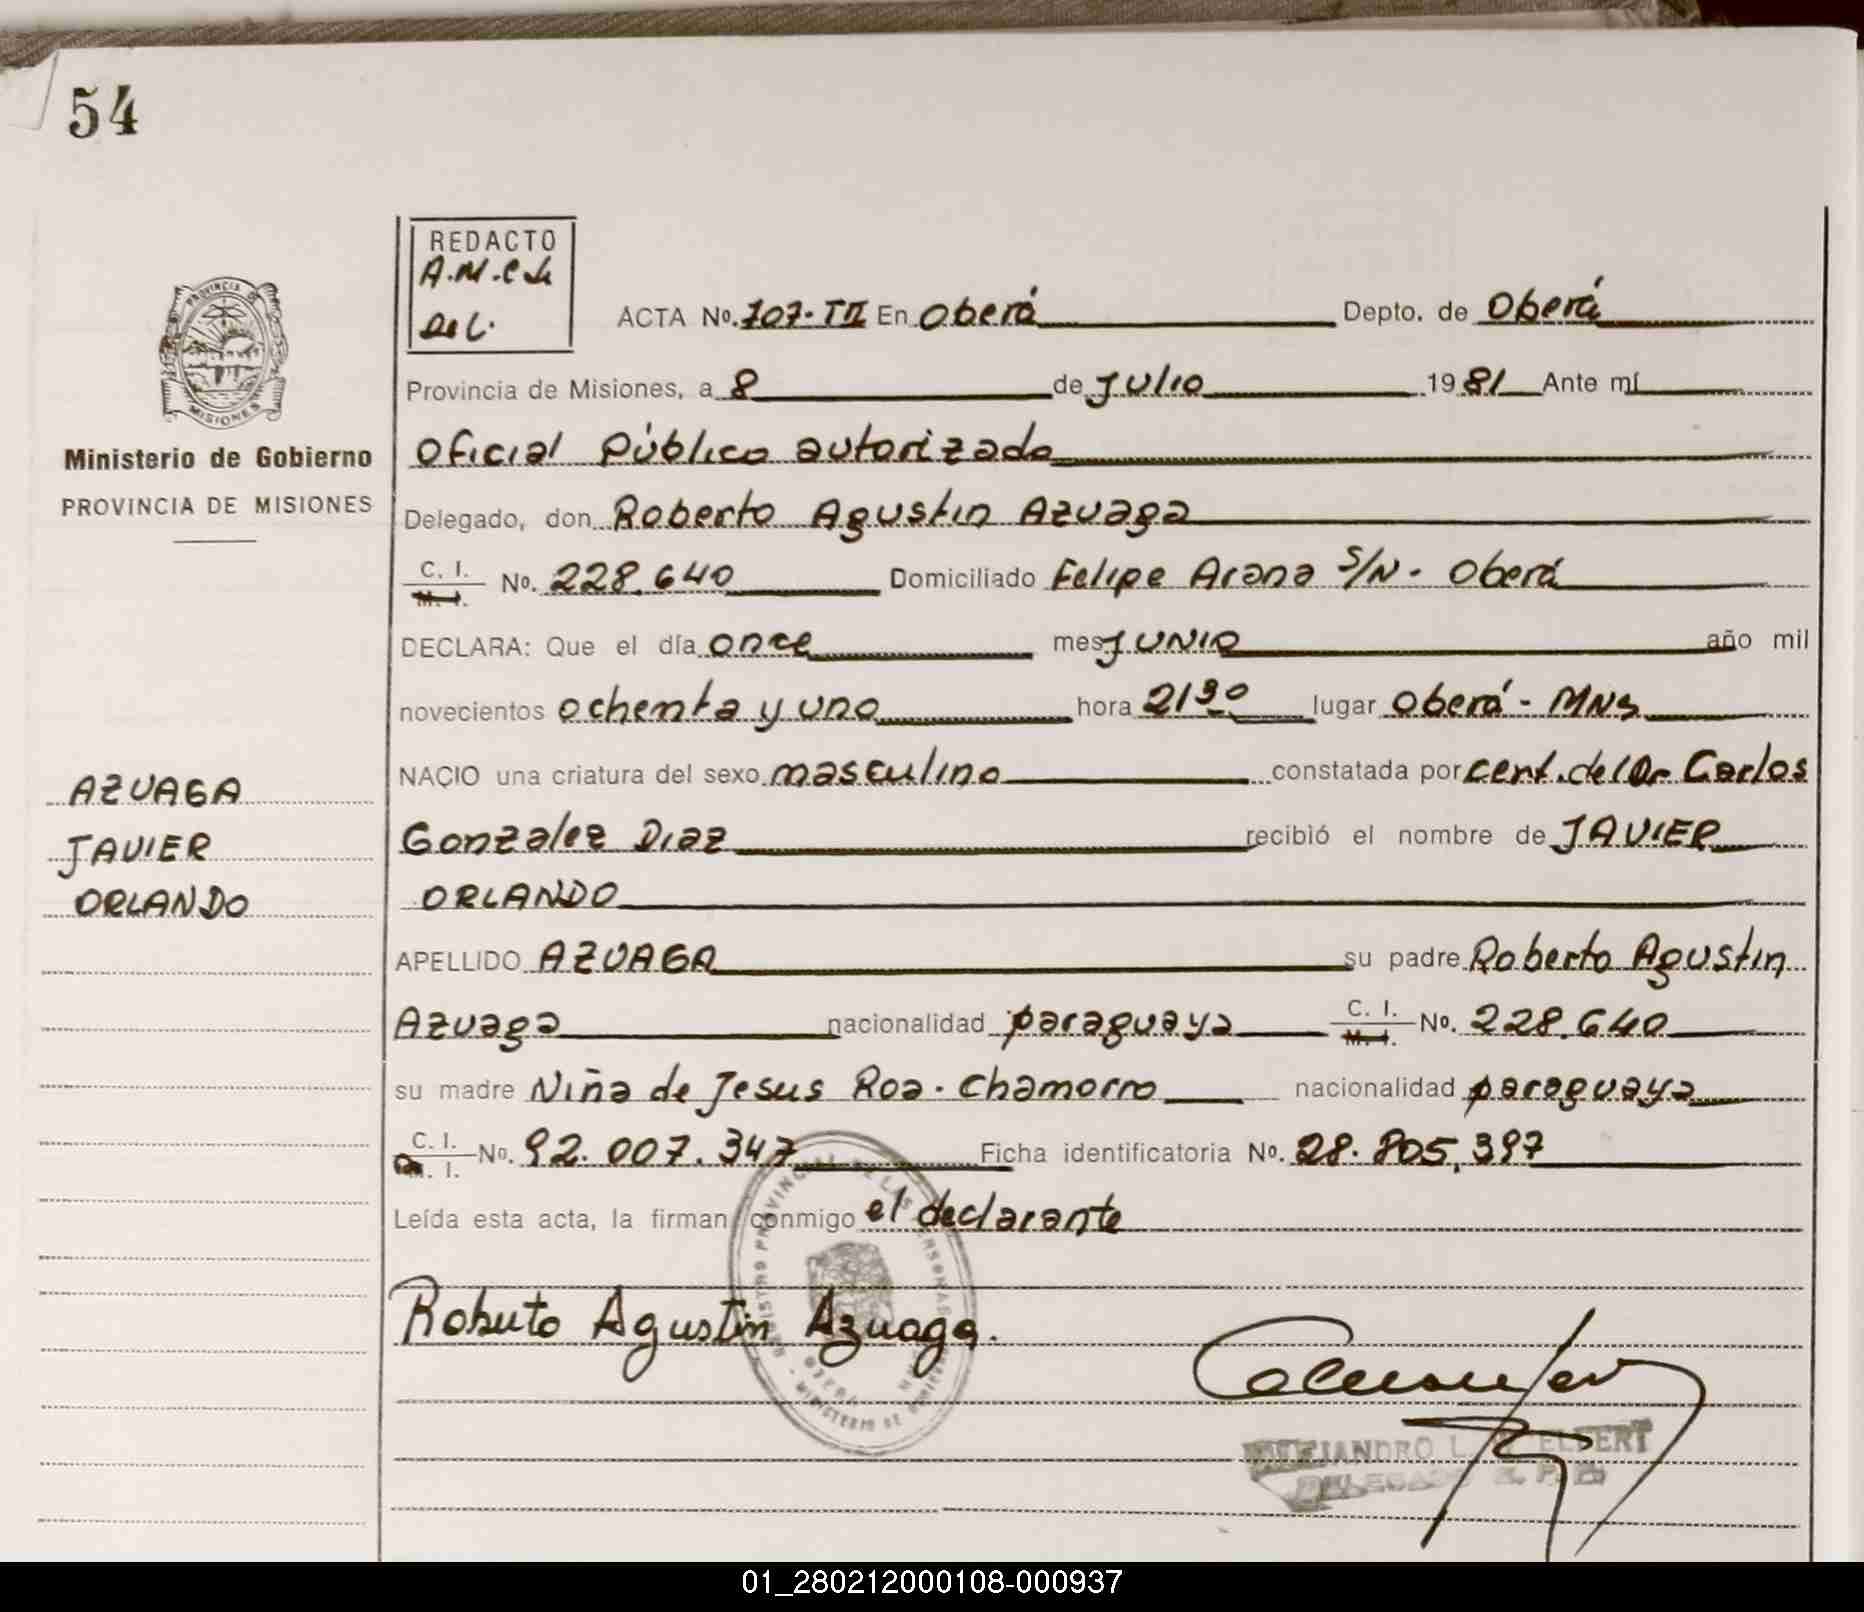 54
REDACTO
A.M.C de
Del.
PROVINCIA DE
MISIONES
Ministerio de Gobierno
PROVINCIA DE MISIONES
ACTA No. 707-TII En Oberá Depto. de Oberá
Provincia de Misiones, a 8 de Julio 1981 Ante mí
Oficial Público autorizado
Delegado, don Roberto Agustin Azuaga
C. I. M. I. No. 228.640 Domiciliado Felipe Arana S/N - Oberá
DECLARA: Que el día once mes Junio año mil
novecientos ochenta y uno hora 21 30 lugar Oberá - MNS
NACIO una criatura del sexo masculino constatada por cert. del Dr Carlos
Gonzalez Diaz recibió el nombre de JAVIER
ORLANDO
APELLIDO AZUAGA su padre Roberto Agustin
Azuaga nacionalidad paraguaya C. I. M. I. No. 228.640
su madre Niña de Jesus Roa - Chamorro nacionalidad paraguaya
C. I. M. I. No. 92.007.347 Ficha identificatoria No. 28.805.397
Leída esta acta, la firman conmigo el declarante
AZUAGA
JAVIER
ORLANDO
Roberto Agustin Azuaga.
REGISTRO PROVINCIAL DE LAS PERSONAS
OBERA
MINISTERIO DE GOBIERNO
ALEJANDRO L. ELBERT
DELEGADO R. P. P.
01_280212000108-000937